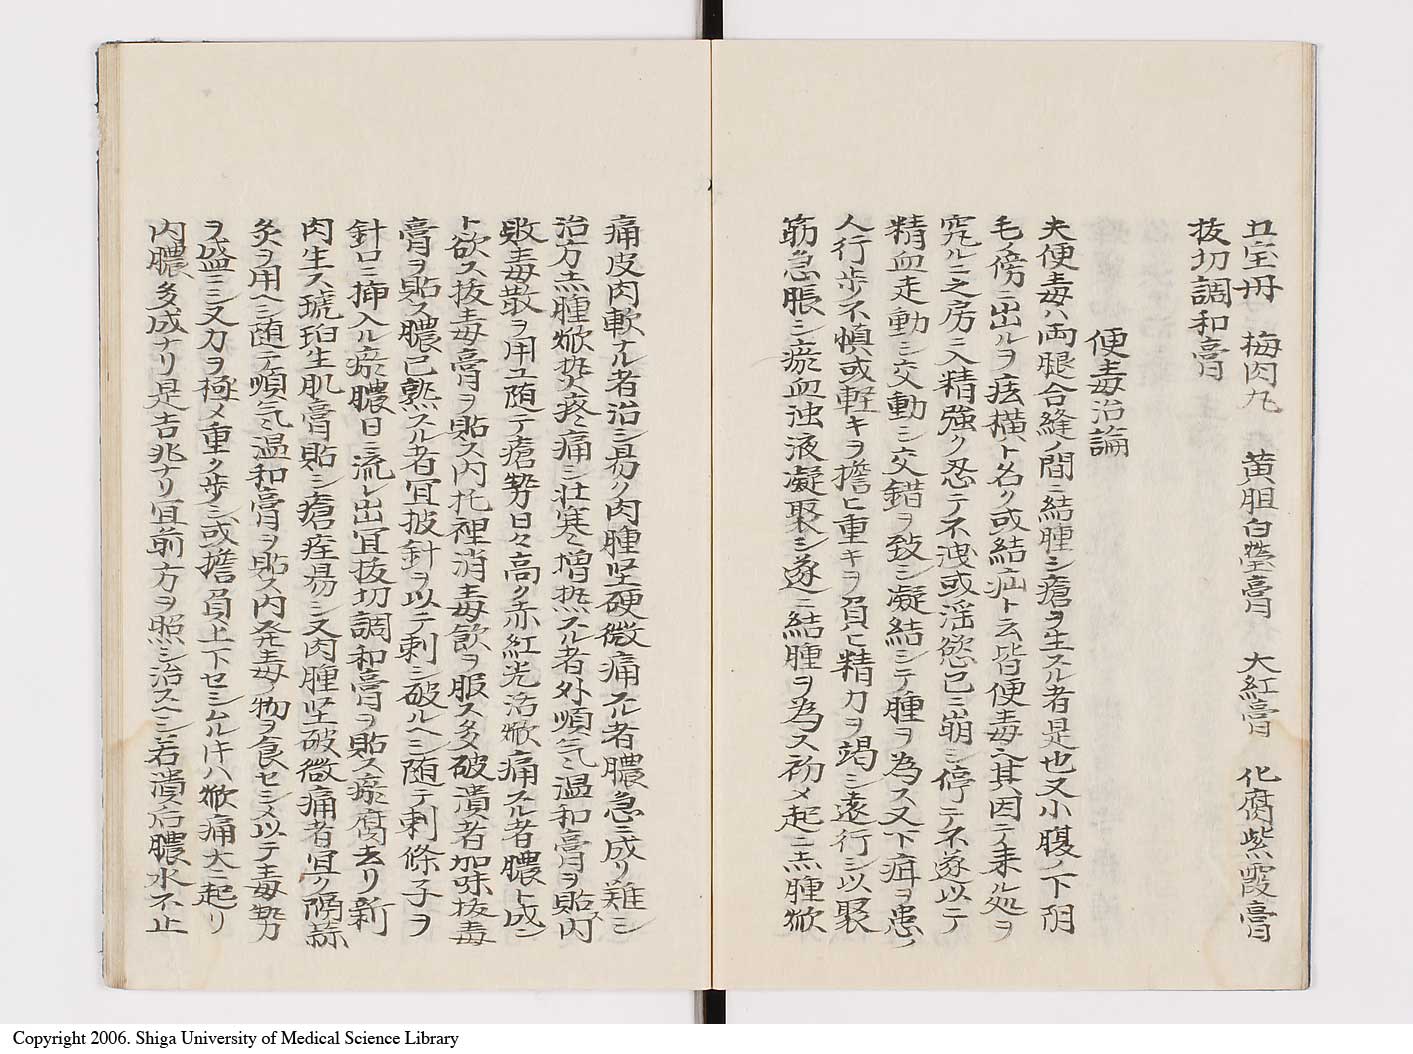 五宝丹 梅肉丸 黄胆白蝋膏 大紅膏 化腐紫霞膏
抜切調和膏
便毒治論
夫便毒ハ両腿合縫ノ間ニ結腫シ瘡ヲ生スル者是也又小腹ノ下阴
毛傍ニ出ルヲ痃横ト名ク或結疝ト云皆便毒也其因テ来ル処ヲ
究ルニ之房ニ入精強ク忍テ不洩或淫慾已ニ崩シ停テ不遂以テ
精血走動シ交動シ交錯ヲ致シ凝結シテ腫ヲ為ス又下疳ヲ患ノ
人行歩不慎或軽キヲ擔ヒ重キヲ負ヒ精力ヲ竭シ遠行シ以聚
筋急脹シ瘀血浊液凝聚シ遂ニ結腫ヲ為ス初メ起ニ赤腫焮
痛皮肉軟ナル者治シ易ク肉腫坚硬微痛スル者膿急ニ成リ難シ
治方赤腫焮热疼痛シ壮寒シ増热スル者外順气温和膏ヲ貼内
敗毒散ヲ用ユ随テ瘡勢日々高ク赤紅光活焮痛スル者膿ト成ン
ト欲ス抜毒膏ヲ貼ス内托裡消毒飲ヲ服ス多破潰者加味抜毒
膏ヲ貼ス膿已熟スル者冝披針ヲ以テ刺シ破ルヘシ随テ刺條子ヲ
針口ニ挿入ル瘀膿日ニ流レ出冝抜切調和膏ヲ貼ス瘀腐去リ新
肉生ス琥珀生肌膏貼シ瘡痊易シ又肉腫坚破微痛者冝ク隔蒜
灸ヲ用ヘシ随テ順气温和膏ヲ貼ス内発毒ノ物ヲ食セシメ以テ毒勢
ヲ盛ニシ又力ヲ極メ重ク歩シ或擔負上下セシムル片ハ焮痛大ニ起リ
内膿多成ナリ是吉兆ナリ冝前方ヲ照シ治スヘシ若潰后膿水不止
Copyright 2006. Shiga University of Medical Science Library